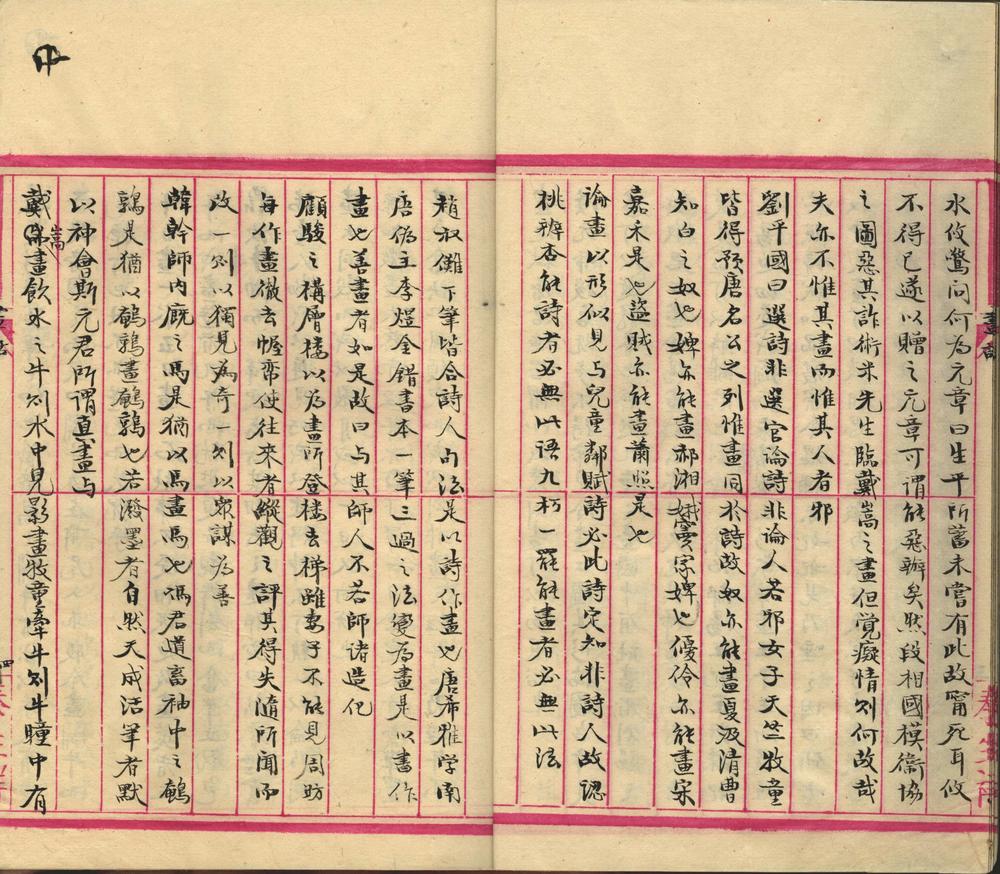 水攸驚問何為元章曰生平所蓄未嘗有此故甯死耳攸
不得已遂以贈之元章可謂能惡辦矣然段相國模衛協
之圖惡其詐術米先生臨戴嵩之畫但覺癡情則何故哉
夫亦不惟其畫而惟其人者邪
劉平國曰選詩非選官論詩非論人若邪女子天竺牧童
皆得預唐名公之列惟畫同於詩故奴亦能畫夏汲清曹
知白之奴也婢亦能畫郝湘娥竇家婢也優伶亦能畫宋
嘉禾是也盜賊亦能畫蕭照是也
論畫以形似見与兒童鄰賦詩必此詩定知非詩人故認
桃辨杏能詩者必無此語九朽一罷能畫者必無此法
趙叔儺下筆皆合詩人句法是以詩作畫也唐希雅学南
唐偽主李煜金錯書本一筆三過之法變為畫是以書作
畫也善畫者如是故曰与其師人不若師诸造化
顧駿之構層樓以為畫所登楼去梯雖妻子不能見周昉
每作畫徹去幄帟使往來者縱觀之評其得失隨所聞而
改一則以獨見為奇一則以衆謀为善
韓幹師内廐之馬是猶以馬畫馬也馮君道畜袖中之鵪
鶉是猶以鵪鶉畫鵪鶉也若潑墨者自然天成活筆者默
以神會斯元君所謂真畫与
戴嵩畫飲水之牛則水中見影畫牧童牽牛則牛瞳中有